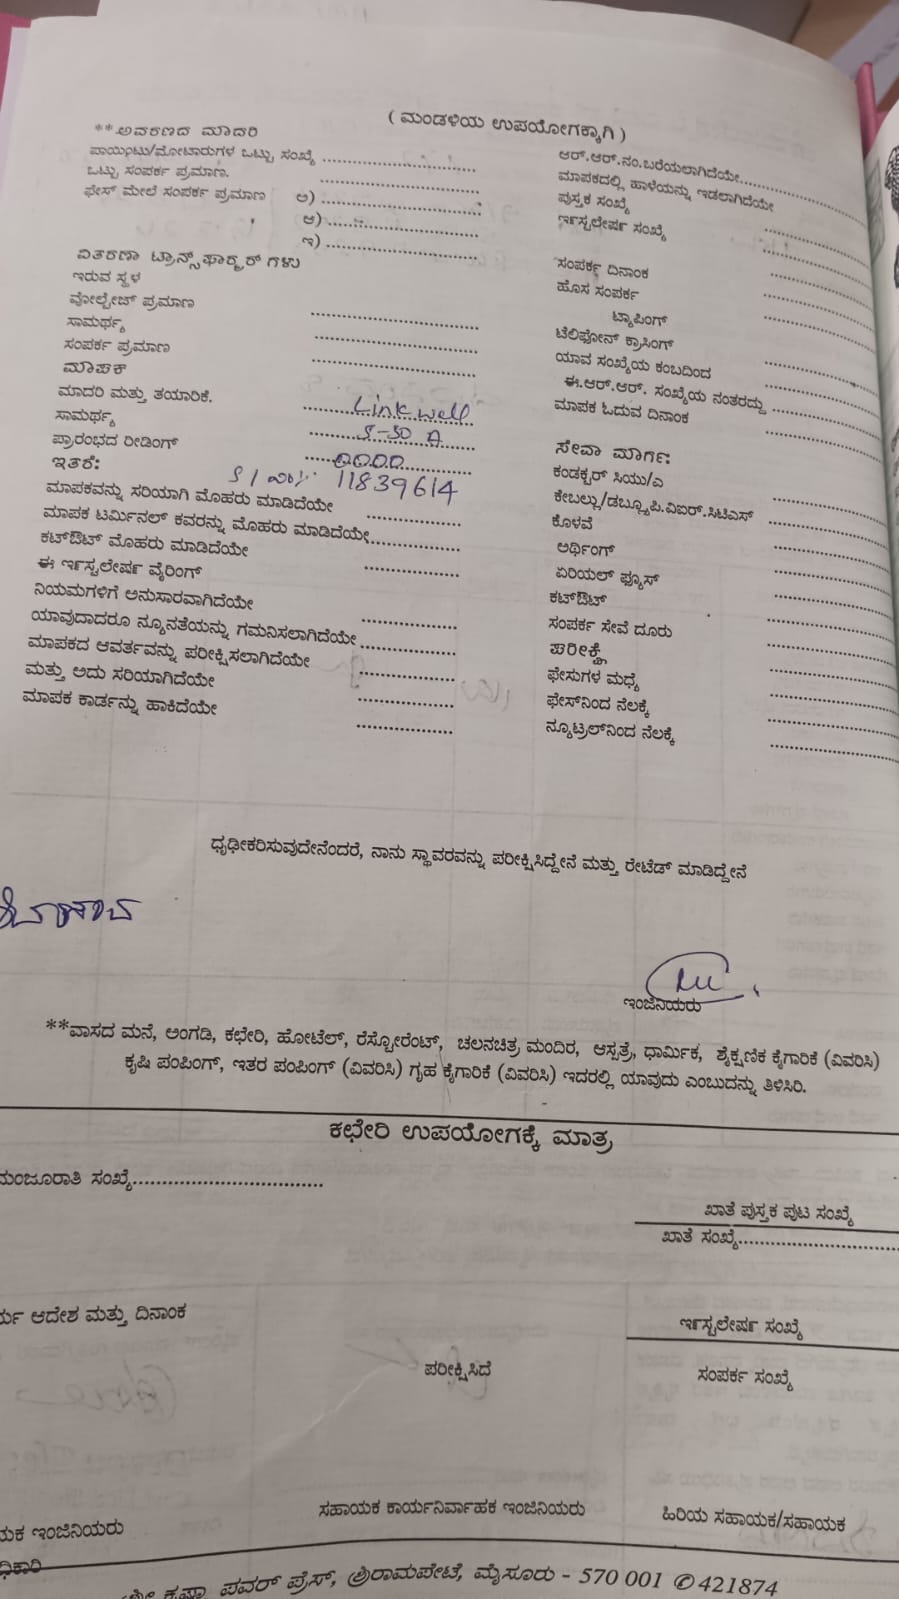 ( ಮಂಡಳಿಯ ಉಪಯೋಗಕ್ಕಾಗಿ )
**ಅವರಣದ ಮಾದರಿ
ಪಾಯಿಂಟು/ಮೋಟಾರುಗಳ ಒಟ್ಟು ಸಂಖ್ಯೆ ..........................
ಒಟ್ಟು ಸಂಪರ್ಕ ಪ್ರಮಾಣ. ..........................
ಫೇಸ್ ಮೇಲೆ ಸಂಪರ್ಕ ಪ್ರಮಾಣ ಅ) ..........................
ಆ) ..........................
ಇ) ..........................
ವಿತರಣಾ ಟ್ರಾನ್ಸ್‌ಫಾರ್‍ಮರ್ ಗಳು
ಇರುವ ಸ್ಥಳ
ವೋಲ್ಟೇಜ್ ಪ್ರಮಾಣ ..........................
ಸಾಮರ್ಥ್ಯ ..........................
ಸಂಪರ್ಕ ಪ್ರಮಾಣ ..........................
ಮಾಪಕ
ಮಾದರಿ ಮತ್ತು ತಯಾರಿಕೆ. Linkwell
ಸಾಮರ್ಥ್ಯ 5-30 A
ಪ್ರಾರಂಭದ ರೀಡಿಂಗ್ 0000
ಇತರೆ: 11839614
ಮಾಪಕವನ್ನು ಸರಿಯಾಗಿ ಮೊಹರು ಮಾಡಿದೆಯೇ ................
ಮಾಪಕ ಟರ್ಮಿನಲ್ ಕವರನ್ನು ಮೊಹರು ಮಾಡಿದೆಯೇ................
ಕಟ್‌ಔಟ್ ಮೊಹರು ಮಾಡಿದೆಯೇ ................
ಈ ಇನ್ಸ್ಟಲೇಷನ್ ವೈರಿಂಗ್
ನಿಯಮಗಳಿಗೆ ಅನುಸಾರವಾಗಿದೆಯೇ ................
ಯಾವುದಾದರೂ ನ್ಯೂನತೆಯನ್ನು ಗಮನಿಸಲಾಗಿದೆಯೇ ................
ಮಾಪಕದ ಆವರ್ತವನ್ನು ಪರೀಕ್ಷಿಸಲಾಗಿದೆಯೇ ................
ಮತ್ತು ಅದು ಸರಿಯಾಗಿದೆಯೇ ................
ಮಾಪಕ ಕಾರ್ಡನ್ನು ಹಾಕಿದೆಯೇ ................
ಆರ್.ಆರ್.ನಂ.ಬರೆಯಲಾಗಿದೆಯೇ................
ಮಾಪಕದಲ್ಲಿ ಹಾಳೆಯನ್ನು ಇಡಲಾಗಿದೆಯೇ
ಪುಸ್ತಕ ಸಂಖ್ಯೆ ................
ಇನ್ಸ್ಟಲೇಷನ್ ಸಂಖ್ಯೆ ................
ಸಂಪರ್ಕ ದಿನಾಂಕ ................
ಹೊಸ ಸಂಪರ್ಕ ................
ಟ್ಯಾಪಿಂಗ್ ................
ಟೆಲಿಫೋನ್ ಕ್ರಾಸಿಂಗ್
ಯಾವ ಸಂಖ್ಯೆಯ ಕಂಬದಿಂದ ................
ಈ.ಆರ್.ಆರ್. ಸಂಖ್ಯೆಯ ನಂತರದ್ದು ................
ಮಾಪಕ ಓದುವ ದಿನಾಂಕ ................
ಸೇವಾ ಮಾರ್ಗ:
ಕಂಡಕ್ಟರ್ ಸಿಯು/ಎ ................
ಕೇಬಲ್ಲು/ಡಬ್ಲ್ಯೂಪಿ.ವಿಐರ್.ಸಿಟಿಎಸ್ ................
ಕೊಳವೆ ................
ಅರ್ಥಿಂಗ್ ................
ಏರಿಯಲ್ ಫ್ಯೂಸ್ ................
ಕಟ್‌ಔಟ್ ................
ಸಂಪರ್ಕ ಸೇವೆ ದೂರು ................
ಪರೀಕ್ಷೆ
ಫೇಸುಗಳ ಮಧ್ಯೆ ................
ಫೇಸ್‌ನಿಂದ ನೆಲಕ್ಕೆ ................
ನ್ಯೂಟ್ರಲ್‌ನಿಂದ ನೆಲಕ್ಕೆ ................
ಧೃಢೀಕರಿಸುವುದೇನೆಂದರೆ, ನಾನು ಸ್ಥಾವರವನ್ನು ಪರೀಕ್ಷಿಸಿದ್ದೇನೆ ಮತ್ತು ರೇಟೆಡ್ ಮಾಡಿದ್ದೇನೆ
ಇಂಜಿನಿಯರು
**ವಾಸದ ಮನೆ, ಅಂಗಡಿ, ಕಛೇರಿ, ಹೋಟೆಲ್, ರೆಸ್ಟೋರೆಂಟ್, ಚಲನಚಿತ್ರ ಮಂದಿರ, ಆಸ್ಪತ್ರೆ, ಧಾರ್ಮಿಕ, ಶೈಕ್ಷಣಿಕ ಕೈಗಾರಿಕೆ (ವಿವರಿಸಿ)
ಕೃಷಿ ಪಂಪಿಂಗ್, ಇತರ ಪಂಪಿಂಗ್ (ವಿವರಿಸಿ) ಗೃಹ ಕೈಗಾರಿಕೆ (ವಿವರಿಸಿ) ಇದರಲ್ಲಿ ಯಾವುದು ಎಂಬುದನ್ನು ತಿಳಿಸಿರಿ.
ಕಛೇರಿ ಉಪಯೋಗಕ್ಕೆ ಮಾತ್ರ
ಮಂಜೂರಾತಿ ಸಂಖ್ಯೆ................................
ಖಾತೆ ಪುಸ್ತಕ ಪುಟ ಸಂಖ್ಯೆ
ಖಾತೆ ಸಂಖ್ಯೆ............................
ಆದೇಶ ಮತ್ತು ದಿನಾಂಕ
ಇನ್ಸ್ಟಲೇಷನ್ ಸಂಖ್ಯೆ
ಪರೀಕ್ಷಿಸಿದೆ
ಸಂಪರ್ಕ ಸಂಖ್ಯೆ
ಇಂಜಿನಿಯರು
ಸಹಾಯಕ ಕಾರ್ಯನಿರ್ವಾಹಕ ಇಂಜಿನಿಯರು
ಹಿರಿಯ ಸಹಾಯಕ/ಸಹಾಯಕ
ಶ್ರೀ ಕೃಷ್ಣಾ ಪವರ್ ಪ್ರೆಸ್, ಶ್ರೀರಾಮಪೇಟೆ, ಮೈಸೂರು - 570 001 ✆421874